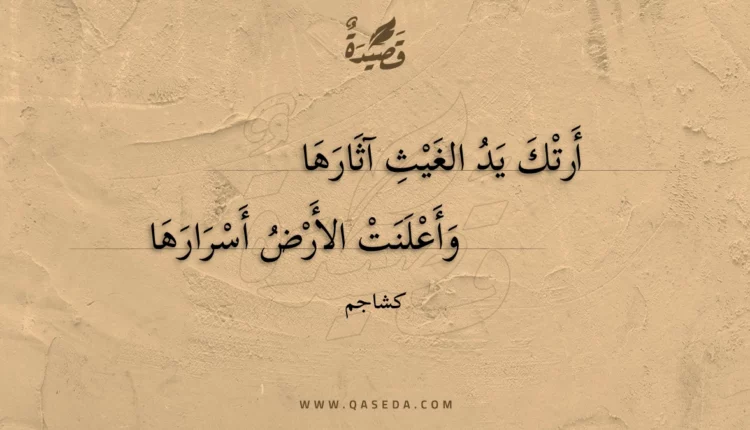 قَصِيدَةٌ
أَرتْكَ يَدُ الغَيْثِ آثَارَهَا
وَأَعْلَنَتْ الأَرْضُ أَسْرَارَهَا
كشاجم
WWW.QASEDA.COM